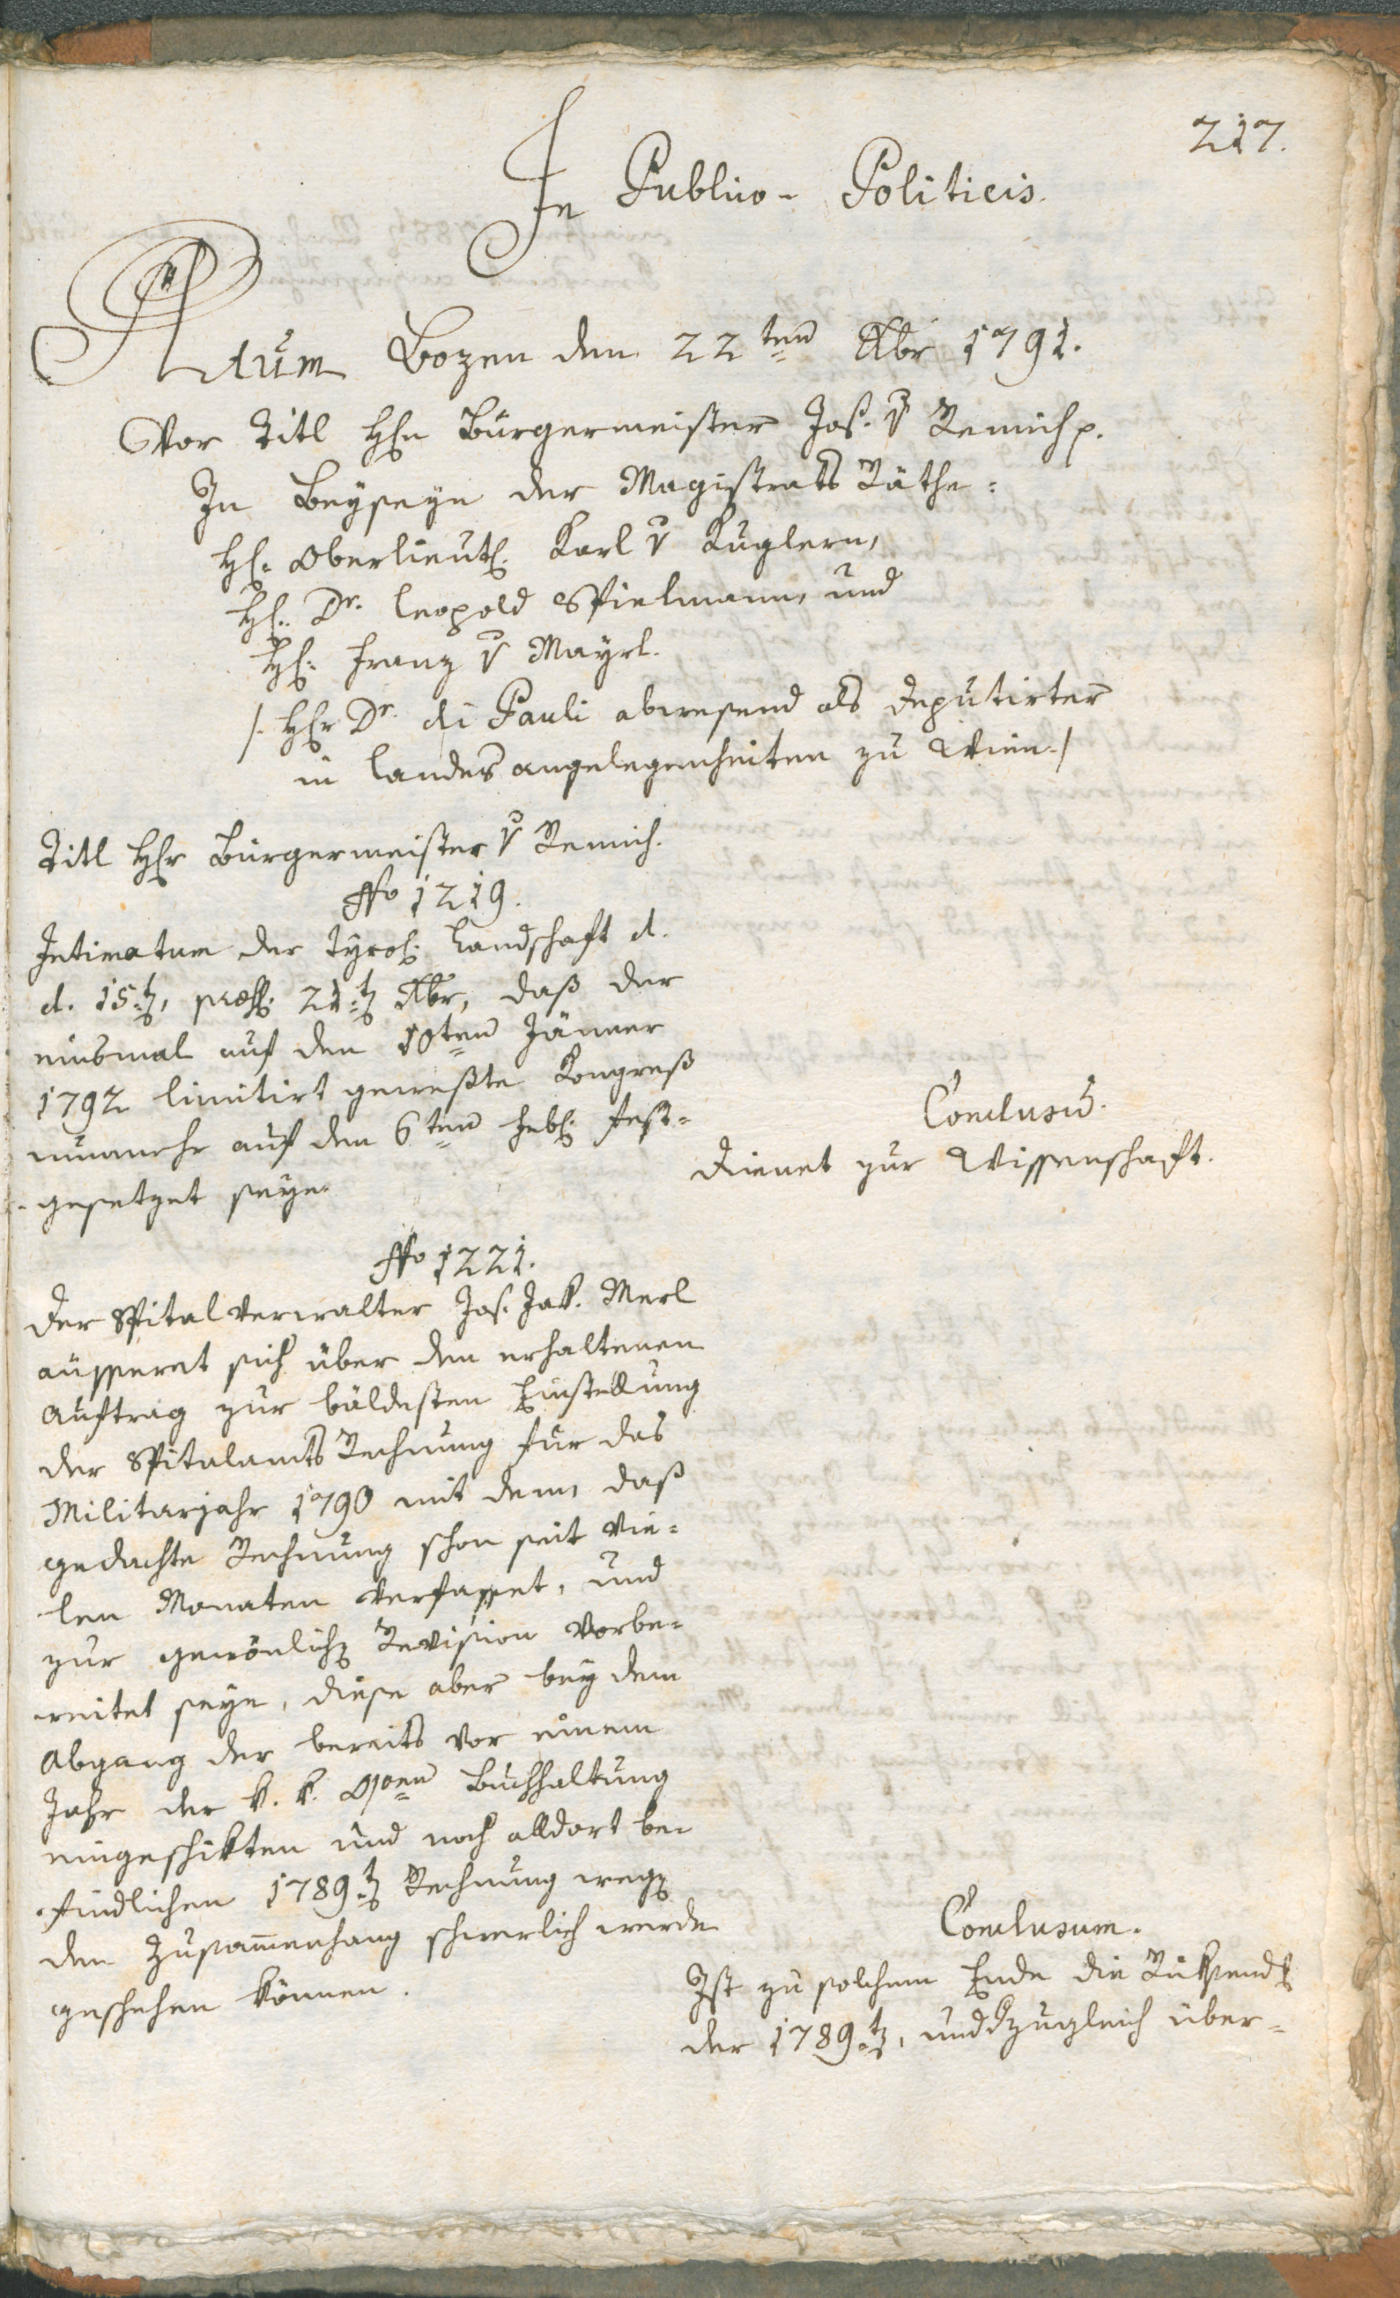 217.
In Publico-Politicis.
Actum Bozen den 22ten Xbr 1791.
Vor Titl Hhn Bürgermeister Jos. v Remich p.
In Beyseyn der Magistrats Räthe:
H. Oberlieut. Karl v Kuglern,
H. Dr. Leopold Spielmann, und
H. Franz v Mayrl.
/. Hr Dr. di Pauli abwesend als Deputirter
in Landesangelegenheiten zu Wien ./
Titl Hr Bürgermeister v Remich.
No 1219.
Intimatum der Tyrol. Landschaft d.
d. 15t, præs. 21t Xbr, daß der
einsmal auf den 10ten Jänner
1792 limitirt geweßte Kongreß
nunmehr auf den 6ten Feb. fest-
gesetzet seye.
Conclusū.
Dienet zur Wissenschaft.
No 1221.
Der Spitalverwalter Jos. Jak. Merl
äusseret sich über den erhaltenen
Auftrag zur bäldesten Einstellung
der Spitalamts Rechnung für das
Militarjahr 1790 mit dem, daß
gedachte Rechnung schon seit vie-
len Monaten verfasset, und
zur gewönlich Revision vorbe-
reitet seye, diese aber bey dem
Abgang der bereits vor einem
Jahr der k. k. Buchhaltung
eingeschikten und noch alldort be-
findlichen 1789t Rechnung weg
den Zusam̄enhang schwerlich werde
geschehen können.
Conclusum.
Ist zu solchem Ende die Rüksend
der 1789t, und zugleich über-